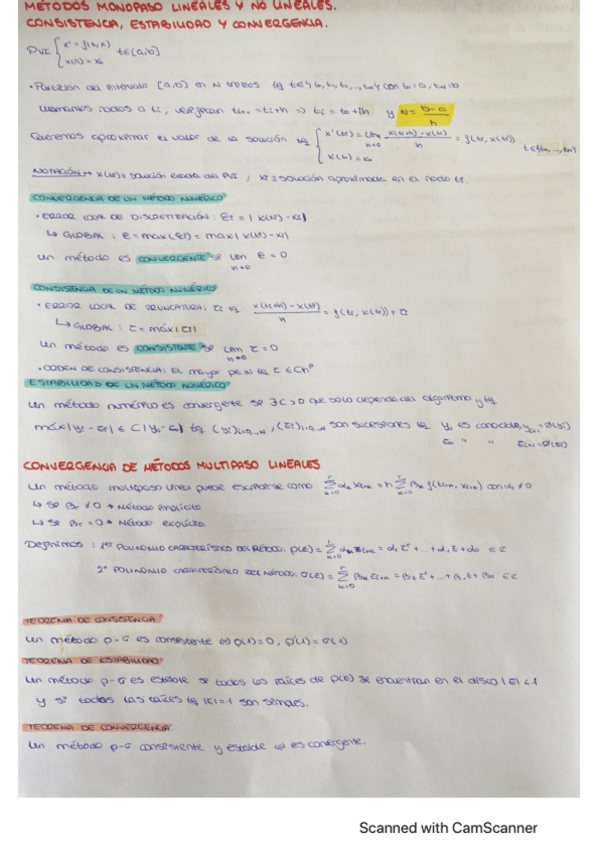 MÉTODOS MONOPASO LINEALES Y NO LINEALES.
CONSISTENCIA, ESTABILIDAD Y CONVERGENCIA.
PVI { x' = f(t,x) t∈[a,b]
x(a) = x₀
• Partición del intervalo [a,b] en N trozos tq t∈{t₀,t₁,...,tN} con t₀=a, tN=b
Llamamos nodos a ti, verifican ti+1 = ti+h ⇒ ti = t₀+ih y N = b-a/h
Queremos aproximar el valor de la solución tq { x'(ti) = lim h→0 x(ti+h) - x(ti)/h = f(ti, x(ti)) t∈{t₀,...,tN}
x(t₀) = x₀
NOTACIÓN → x(ti) ≡ solución exacta del PVI / xi ≡ solución aproximada en el nodo ti.
CONVERGENCIA DE UN MÉTODO NUMÉRICO
• ERROR LOCAL DE DISCRETIZACIÓN: εi = |x(ti) - xi|
↳ GLOBAL: ε = max{εi} = max|x(ti) - xi|
Un método es CONVERGENTE si lim h→0 ε = 0
CONSISTENCIA DE UN MÉTODO NUMÉRICO
• ERROR LOCAL DE TRUNCATURA: τi tq x(ti+h) - x(ti)/h = f(ti, x(ti)) + τi
↳ GLOBAL: τ = máx|τi|
Un método es CONSISTENTE si lim h→0 τ = 0
• ORDEN DE CONSISTENCIA: El mayor p∈ℕ tq τ ≤ Ch^p
ESTABILIDAD DE UN MÉTODO NUMÉRICO
Un método numérico es convergente si ∃C>0 que solo depende del algoritmo y tq
máx|yi - zi| ≤ C|y₀ - z₀| tq {yi}i=0..N, {zi}i=0..N son sucesiones tq y₀ es conocido, yi+1 = Φ(yi)
z₀ " " zi+1 = Φ(zi)
CONVERGENCIA DE MÉTODOS MULTIPASO LINEALES
Un método multipaso lineal puede escribirse como Σ k=0 r αk xi+k = h Σ k=0 r βk f(ti+k, xi+k) con αr ≠ 0
↳ Si βr ≠ 0 → Método implícito
↳ Si βr = 0 → Método explícito.
Definimos: 1er POLINOMIO CARACTERÍSTICO DEL MÉTODO: ρ(z) = = αr z^r + ... + α₁z + α₀ ∈ ℂ
2º POLINOMIO CARACTERÍSTICO DEL MÉTODO: σ(z) = = βr z^r + ... + β₁z + β₀ ∈ ℂ
TEOREMA DE CONSISTENCIA
Un método ρ-σ es consistente ⇔ ρ(1)=0, ρ'(1)=σ(1)
TEOREMA DE ESTABILIDAD
Un método ρ-σ es estable si todas las raíces de ρ(z) se encuentran en el disco |z|<1
y si todas las raíces tq |z|=1 son simples.
TEOREMA DE CONVERGENCIA
Un método ρ-σ consistente y estable ⇔ es convergente.
Scanned with CamScanner